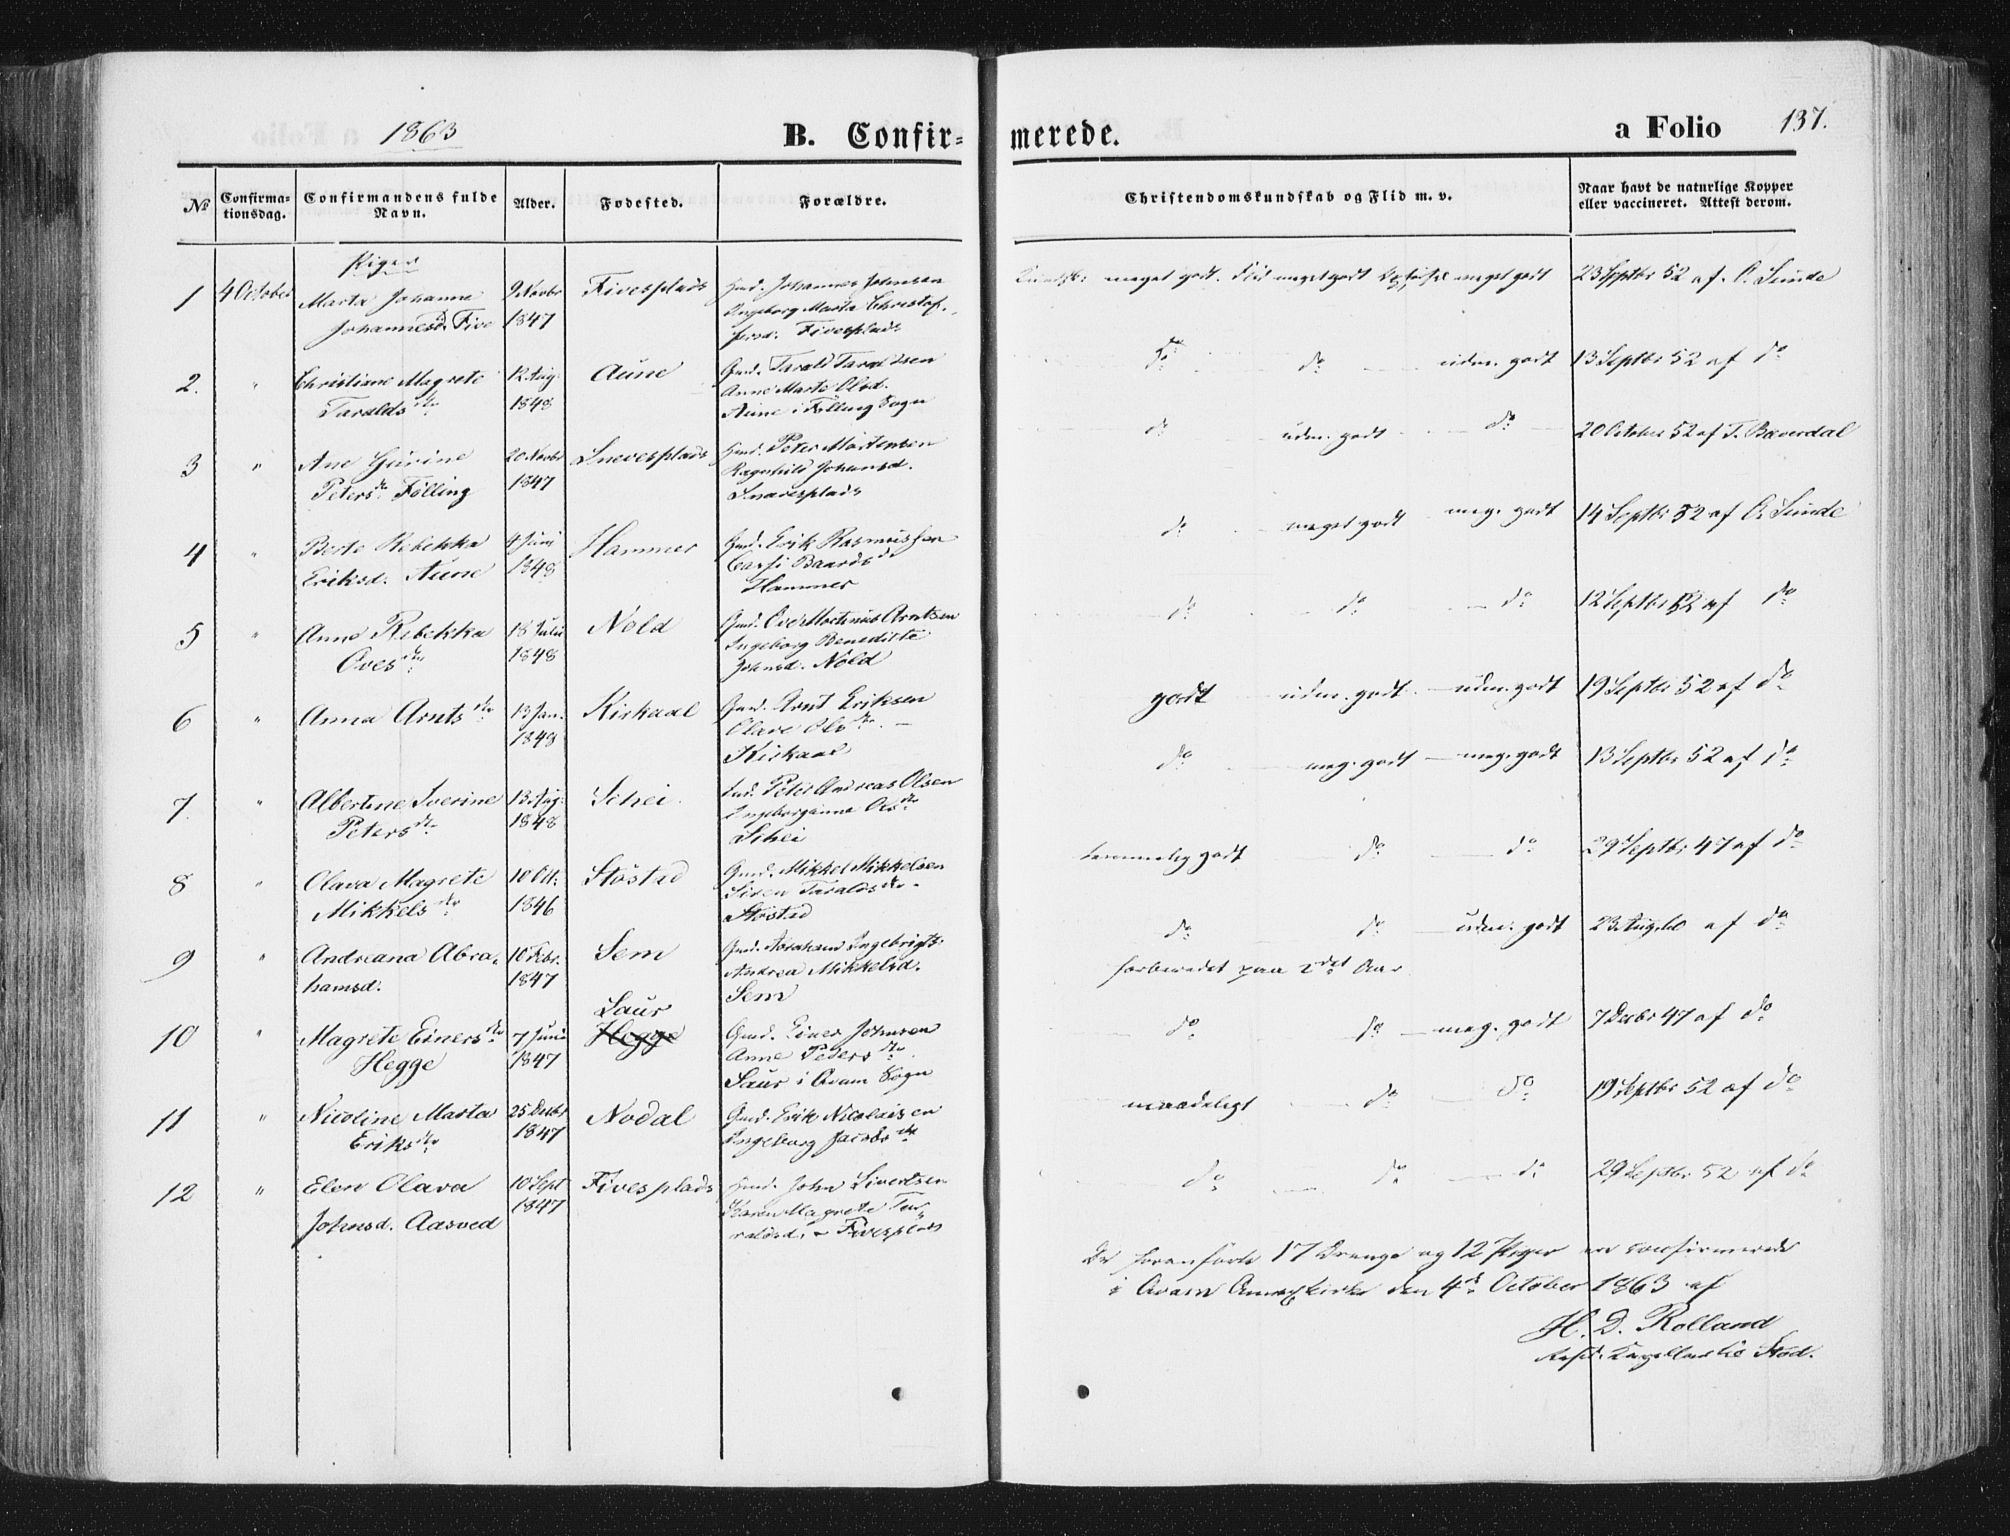 1863
B. Confir-
merede.
a Folio 137.
№
Confirma-
tionsdag.
Confirmandens fulde
Navn.
Alder.
Fødested.
Forældre.
Christendomskundskab og Flid m. v.
Naar havt de naturlige Kopper
eller vaccineret. Attest derom.
Piger
1 4 October Marta Johanna
Johannesd. Five
9 Novbr
1847
Fivesplads
Gmd. Johannes Johnsen
Ingeborg Marta Christof-
fersd. Fivesplads
meget godt. Flid meget godt meget godt
23 Septbr 52 af O. Sunde
2. " Christine Magrete
Taralds dtr
12 Aug
1848
Aune
Gmd. Tarald Taraldsen
Anne Marta Olsd.
Aune i Følling Sogn
do do udm. godt
13 Septbr 52 af do
3 " Ane Gurine
Peters dtr Følling
20 Novbr
1847
Snevesplads
Gmd. Peter Mortensen
Ragnhild Johansd.
Snavesplads
do udm. godt do
20 October 52 af T. Baverdal
4 " Berte Rebekka
Eriksd. Aune
4 Juni
1848
Hammer
Gmd. Erik Rasmussen
Baards dr
Hammer
do meget godt meg. godt
14 Septbr 52 af O. Sunde
5 " Anne Rebekka
Oves dtr
18 Juli
1848
Nøld
Gmd. Ove Martinus Arntsen
Ingeborg Beneditte
Johnsd. Nøld
do do do
12 Septbr 52 af do
6 " Anna Arnts dtr
13 Jan.
1848
Kirkaal
Gmd. Arnt Eriksen
Olave Ols dtr
Kirkaal
godt udm. godt udm. godt
19 Septbr 52 af do
7. " Albertine Iverine
Peters dtr
13 Aug.
1848
Schei.
Ind. Peter Andreas Olsen
Ingeborganna Ols dtr
Schei
do meg. godt meg. godt
13 Septbr 52 af do
8 " Olava Magrete
Mikkels dtr
10 Oct.
1846
Støstad
Gmd. Mikkel Mikkelsen
Siren Taralds dtr
Støstad
temmelig godt do do
29 Septbr 47 af do
9 " Andreana Abra-
hamsd.
10 Febr.
1847
Sem
Gmd. Abraham Ingebrigts.
Andrea Mikkelsd.
Sem
do do udm. godt
23 Aug. 60 af do
forberedet paa 2det Aar
10 " Magrete Einers dtr
Hegge
7 Juni
1847
Saur
Hegge
Gmd. Einer Johnsen
Anne Peders dtr
Saur i Qvam Sogn
do do meg. godt
7 Decbr 47 af do
11 " Nicoline Marta
Eriks dtr
25 Decbr
1847
Nodal
Gmd. Erik Nicolaisen
Ingeborg Jacobs dtr
maadeligt do do
19 Septbr 52 af do
12 " Elen Olava
Johnsd. Aasved
10 Sept
1847
Fivesplads
Gmd. John Sivertsen
Karen Magrete Ta-
raldsd. Fivesplads
do do do
29 Septbr 52 af do
De foranførte 17 Drenge og 12 Piger ere confirmerede
i Qvam Annexkirke den 4de October 1863 af
H. D. Rolland
Resid. Capellan til Stod.